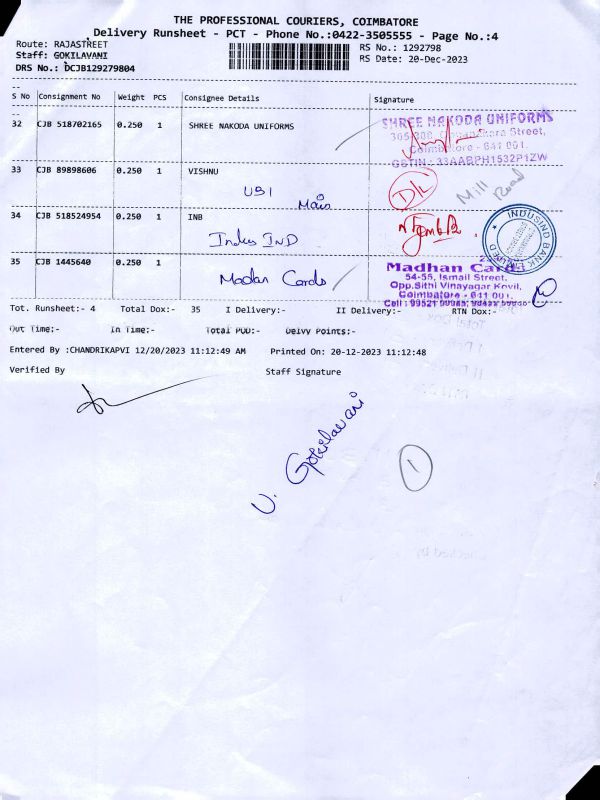 THE PROFESSIONAL COURIERS, COIMBATORE
Delivery Runsheet - PCT - Phone No.:0422-3505555 - Page No.:4
Route: RAJASTREET
Staff: GOKILAVANI
DRS No.: DCJB129279804
RS No.: 1292798
RS Date: 20-Dec-2023
S No Consignment No Weight PCS Consignee Details Signature
32 CJB 518702165 0.250 1 SHREE NAKODA UNIFORMS
SHREE NAKODA UNIFORMS
Street,
Coimbatore - 641 001.
GSTIN : 33AABPH1532P1ZW
33 CJB 89898606 0.250 1 VISHNU
UBI Main
Mill Road
34 CJB 518524954 0.250 1 INB
Indus IND
INDUSIND BANK LIMITED
35 CJB 1445640 0.250 1
Madan Cards
Madhan Cards
54-55, Ismail Street,
Opp.Sithi Vinayagar Kovil,
Coimbatore - 641 001.
Tot. Runsheet:- 4 Total Dox:- 35 I Delivery:- II Delivery:- RTN Dox:-
Out Time:- In Time:- Total POD:- Delvy Points:-
Entered By :CHANDRIKAPVI 12/20/2023 11:12:49 AM Printed On: 20-12-2023 11:12:48
Verified By Staff Signature
V. Gokilavani
1